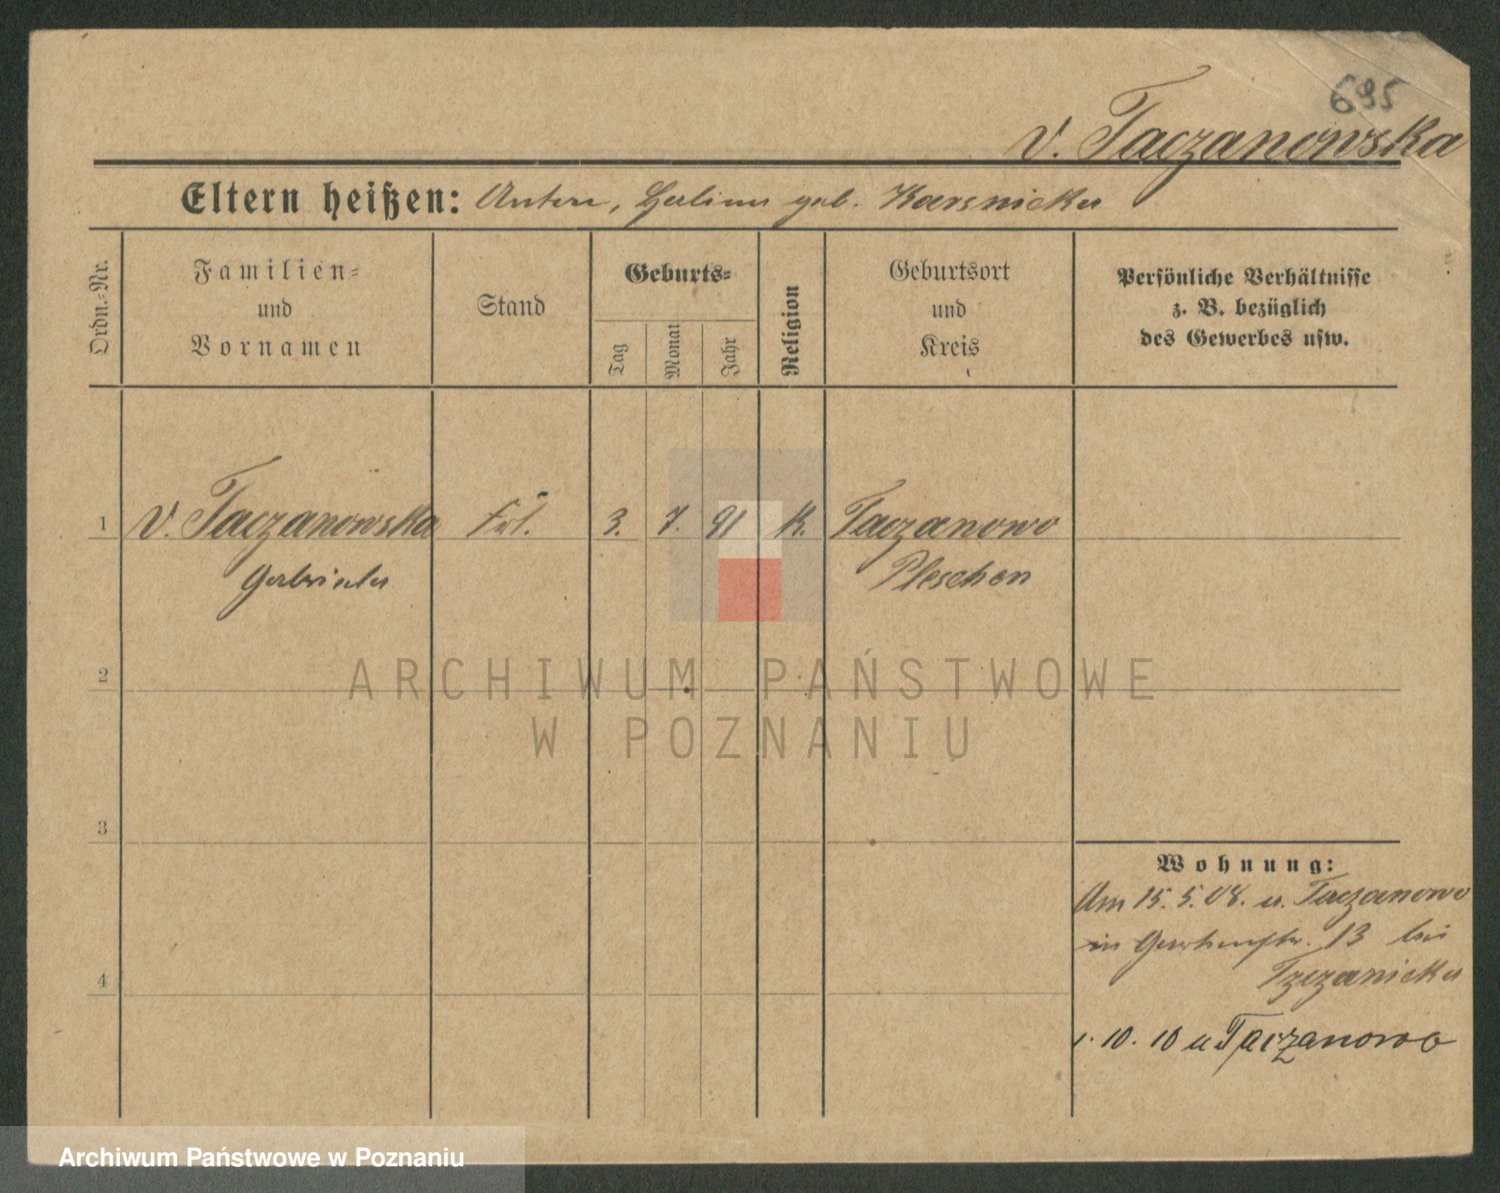 695
v. Taczanowska
Eltern heißen: Anton, Halina geb. Karsnicka
Ordn.-Nr.
Familien-
und
Vornamen
Stand
Geburts-
Tag
Monat
Jahr
Religion
Geburtsort
und
Kreis
Persönliche Verhältnisse
z. B. bezüglich
des Gewerbes usw.
1 v. Taczanowska Frl. 3. 7. 91 K. Taczanowo
Gabriela Pleschen
2
3
4
Wohnung:
Am 15. 5. 08. u. Taczanowo
in 13 bei
1. 10. 10 u Taczanowo
ARCHIWUM PAŃSTWOWE
W POZNANIU
Archiwum Państwowe w Poznaniu